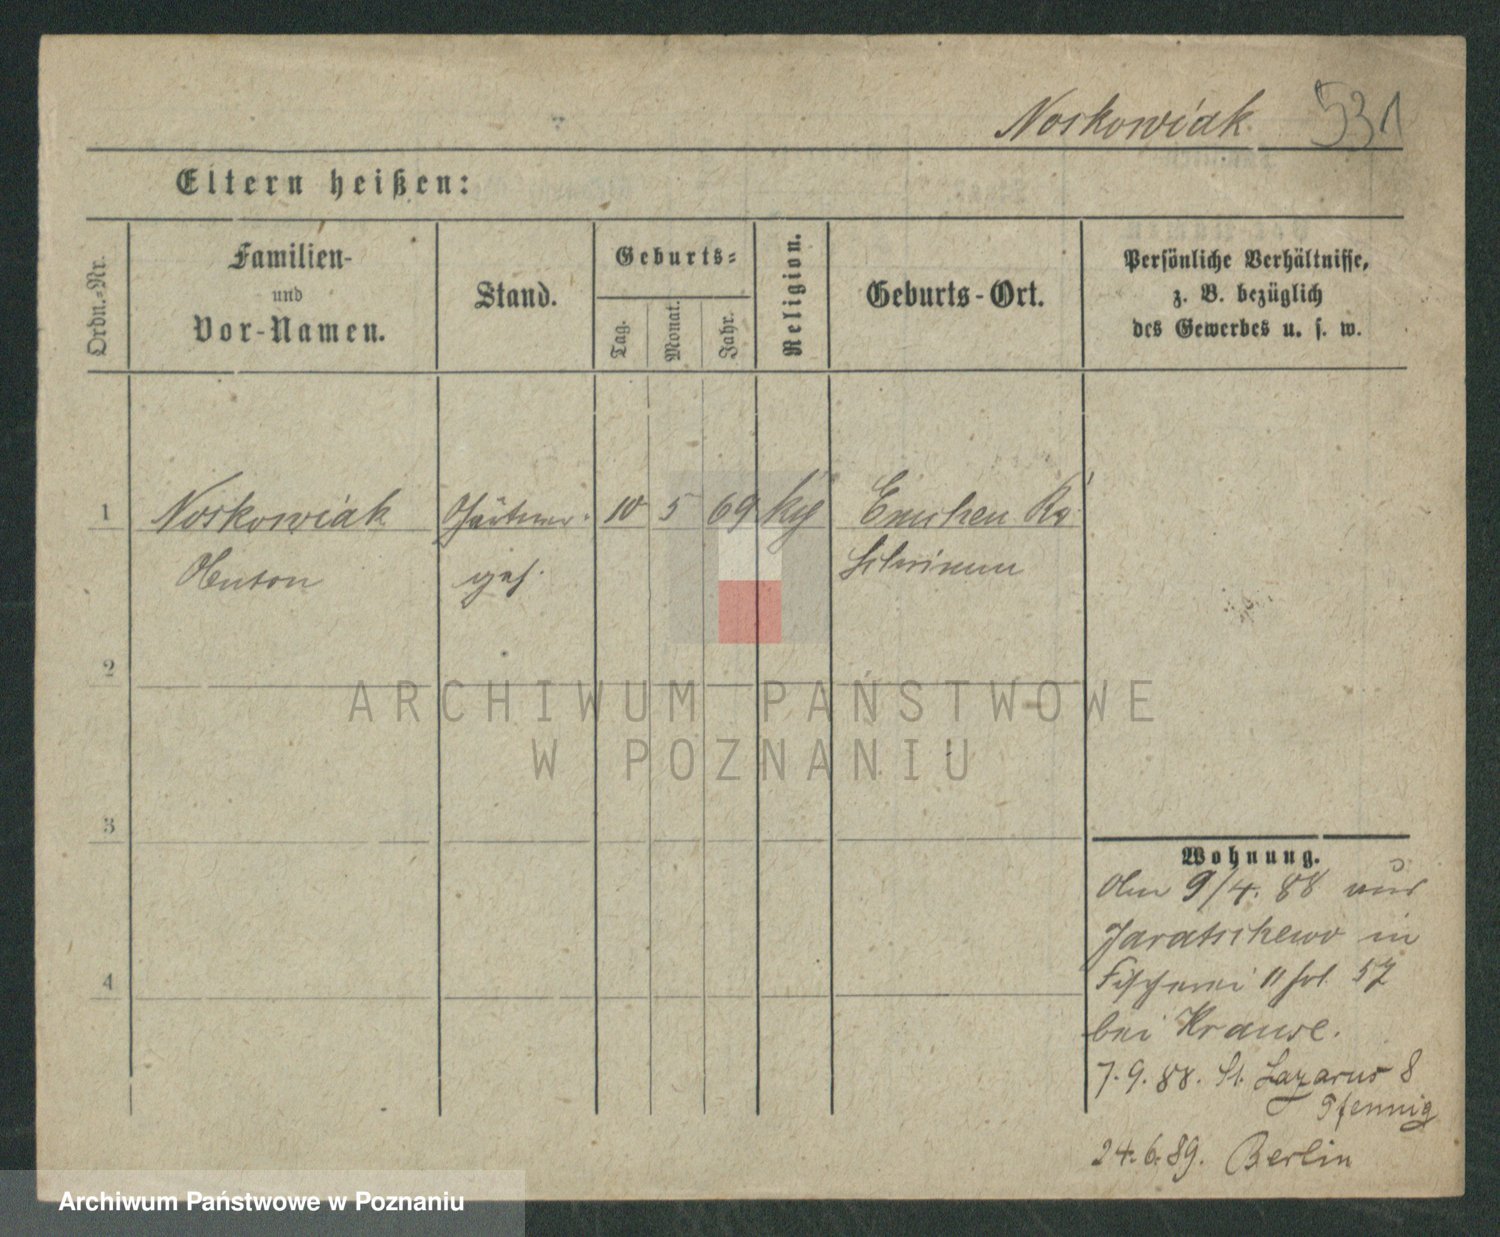 Noskowiak 531
Eltern heißen:
Ordn.-Nr.
Familien-
und
Vor-Namen.
Stand.
Geburts-
Tag.
Monat.
Jahr.
Religion.
Geburts-Ort.
Persönliche Verhältnisse,
z. B. bezüglich
des Gewerbes u. s. w.
1 Noskowiak Gärtner- 10 5 69 Kr
Anton geh.
Schrimm
2
3
4
Wohnung.
Am 9/4. 88 aus
Jaratschewo in
Fischerei 11 57
bei Krause.
7.9.88. St. Lazarus 8
Pfennig
24.6.89. Berlin
ARCHIWUM PAŃSTWOWE
W POZNANIU
Archiwum Państwowe w Poznaniu